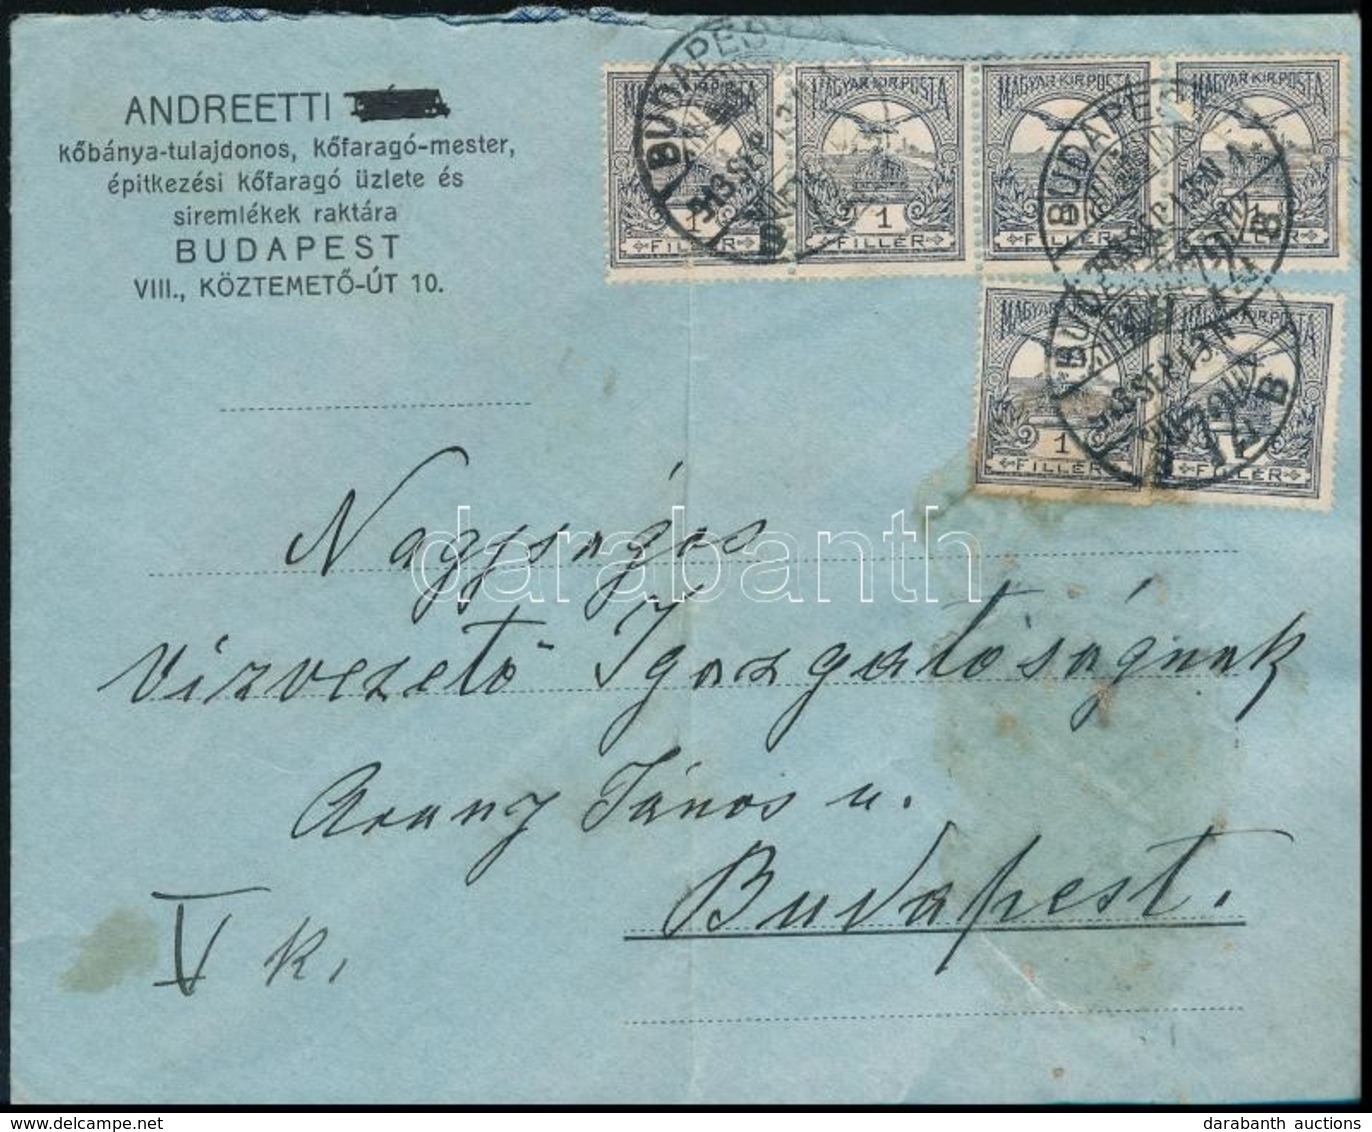 ANDREETTI
kőbánya-tulajdonos, kőfaragó-mester,
épitkezési kőfaragó üzlete és
siremlékek raktára
BUDAPEST
VIII., KÖZTEMETŐ-ÚT 10.
MAGYAR·KIR·POSTA MAGYAR·KIR·POSTA MAGYAR·KIR·POSTA MAGYAR·KIR·POSTA
1 1 1
FILLÉR FILLÉR FILLÉR FILLÉR
BUDAPEST
913 SEP
BUDAPEST
B
MAGYAR·KIR·POSTA MAGYAR·KIR·POSTA
1 1
FILLÉR FILLÉR
BUDAPEST
913 SEP 13 N 1
B
Nagyságos
Vizvezető Igazgatóságnak
Arany János u.
Budapest.
V k.
darabanth
darabanth auctions